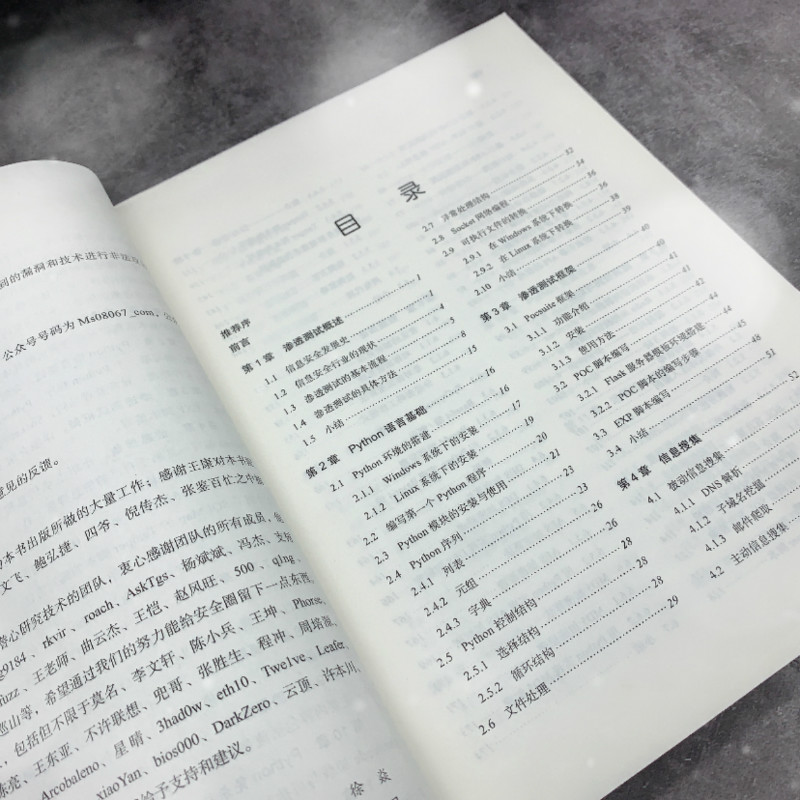 到的漏洞和技术进行非法
公众号号码为 Ms08067_com，
意见的反馈。
本书出版所做的大量工作；感谢王康对本书
文飞、鲍弘捷、四爷、倪传杰、张鉴百忙之中
心研究技术的团队，衷心感谢团队的所有成员，
9184 、rkvir 、roach、AskTgs、杨斌斌、冯杰、
、王老师、曲云杰、王恺、赵风旺、500 、qlng、
山等，希望通过我们的努力能给安全圈留下一点东西。
，包括但不限于莫名、李文轩、陈小兵、王坤、Phorse、
陈亮、王东亚、不许联想、兜哥、张胜生、程冲、周培源、
Arcobaleno、星晴、3had0w、eth10、Twe1ve、Leafer、
xiaoYan、bios000、DarkZero、云顶、许本川、
给予支持和建议。
徐焱
目 录
推荐序
前言
第 1 章 渗透测试概述 1
1.1 信息安全发展史 1
1.2 信息安全行业的现状 4
1.3 渗透测试的基本流程 5
1.4 渗透测试的具体方法 8
1.5 小结 15
第 2 章 Python 语言基础 16
2.1 Python 环境的搭建 16
2.1.1 Windows 系统下的安装 17
2.1.2 Linux 系统下的安装 19
2.2 编写第一个 Python 程序 20
2.3 Python 模块的安装与使用 21
2.4 Python 序列 23
2.4.1 列表 23
2.4.2 元组 26
2.4.3 字典 26
2.5 Python 控制结构 28
2.5.1 选择结构 28
2.5.2 循环结构 28
2.6 文件处理 29
2.7 异常处理结构 32
2.8 Socket 网络编程 34
2.9 可执行文件的转换 36
2.9.1 在 Windows 系统下转换 36
2.9.2 在 Linux 系统下转换 38
2.10 小结 39
第 3 章 渗透测试框架 40
3.1 Pocsuite 框架 40
3.1.1 功能介绍 41
3.1.2 安装 41
3.1.3 使用方法 42
3.2 POC 脚本编写 44
3.2.1 Flask 服务器模板环境搭建 44
3.2.2 POC 脚本的编写步骤 45
3.3 EXP 脚本编写 48
3.4 小结 51
第 4 章 信息搜集 52
4.1 被动信息搜集
4.1.1 DNS 解析
4.1.2 子域名挖掘
4.1.3 邮件爬取
4.2 主动信息搜集